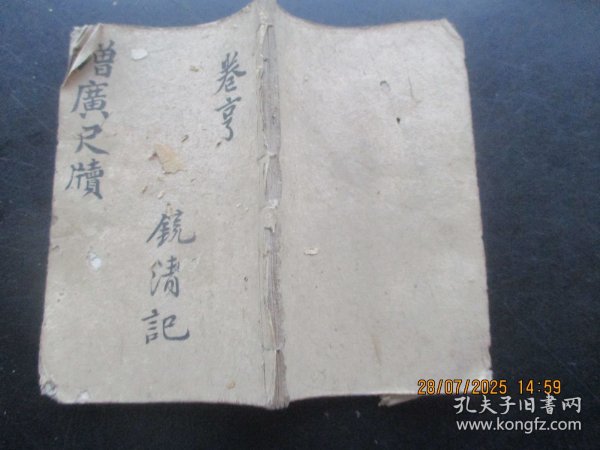 卷亨
增廣尺牘
鏡清記
28/07/2025 14:59
孔夫子旧书网
www.kongfz.com